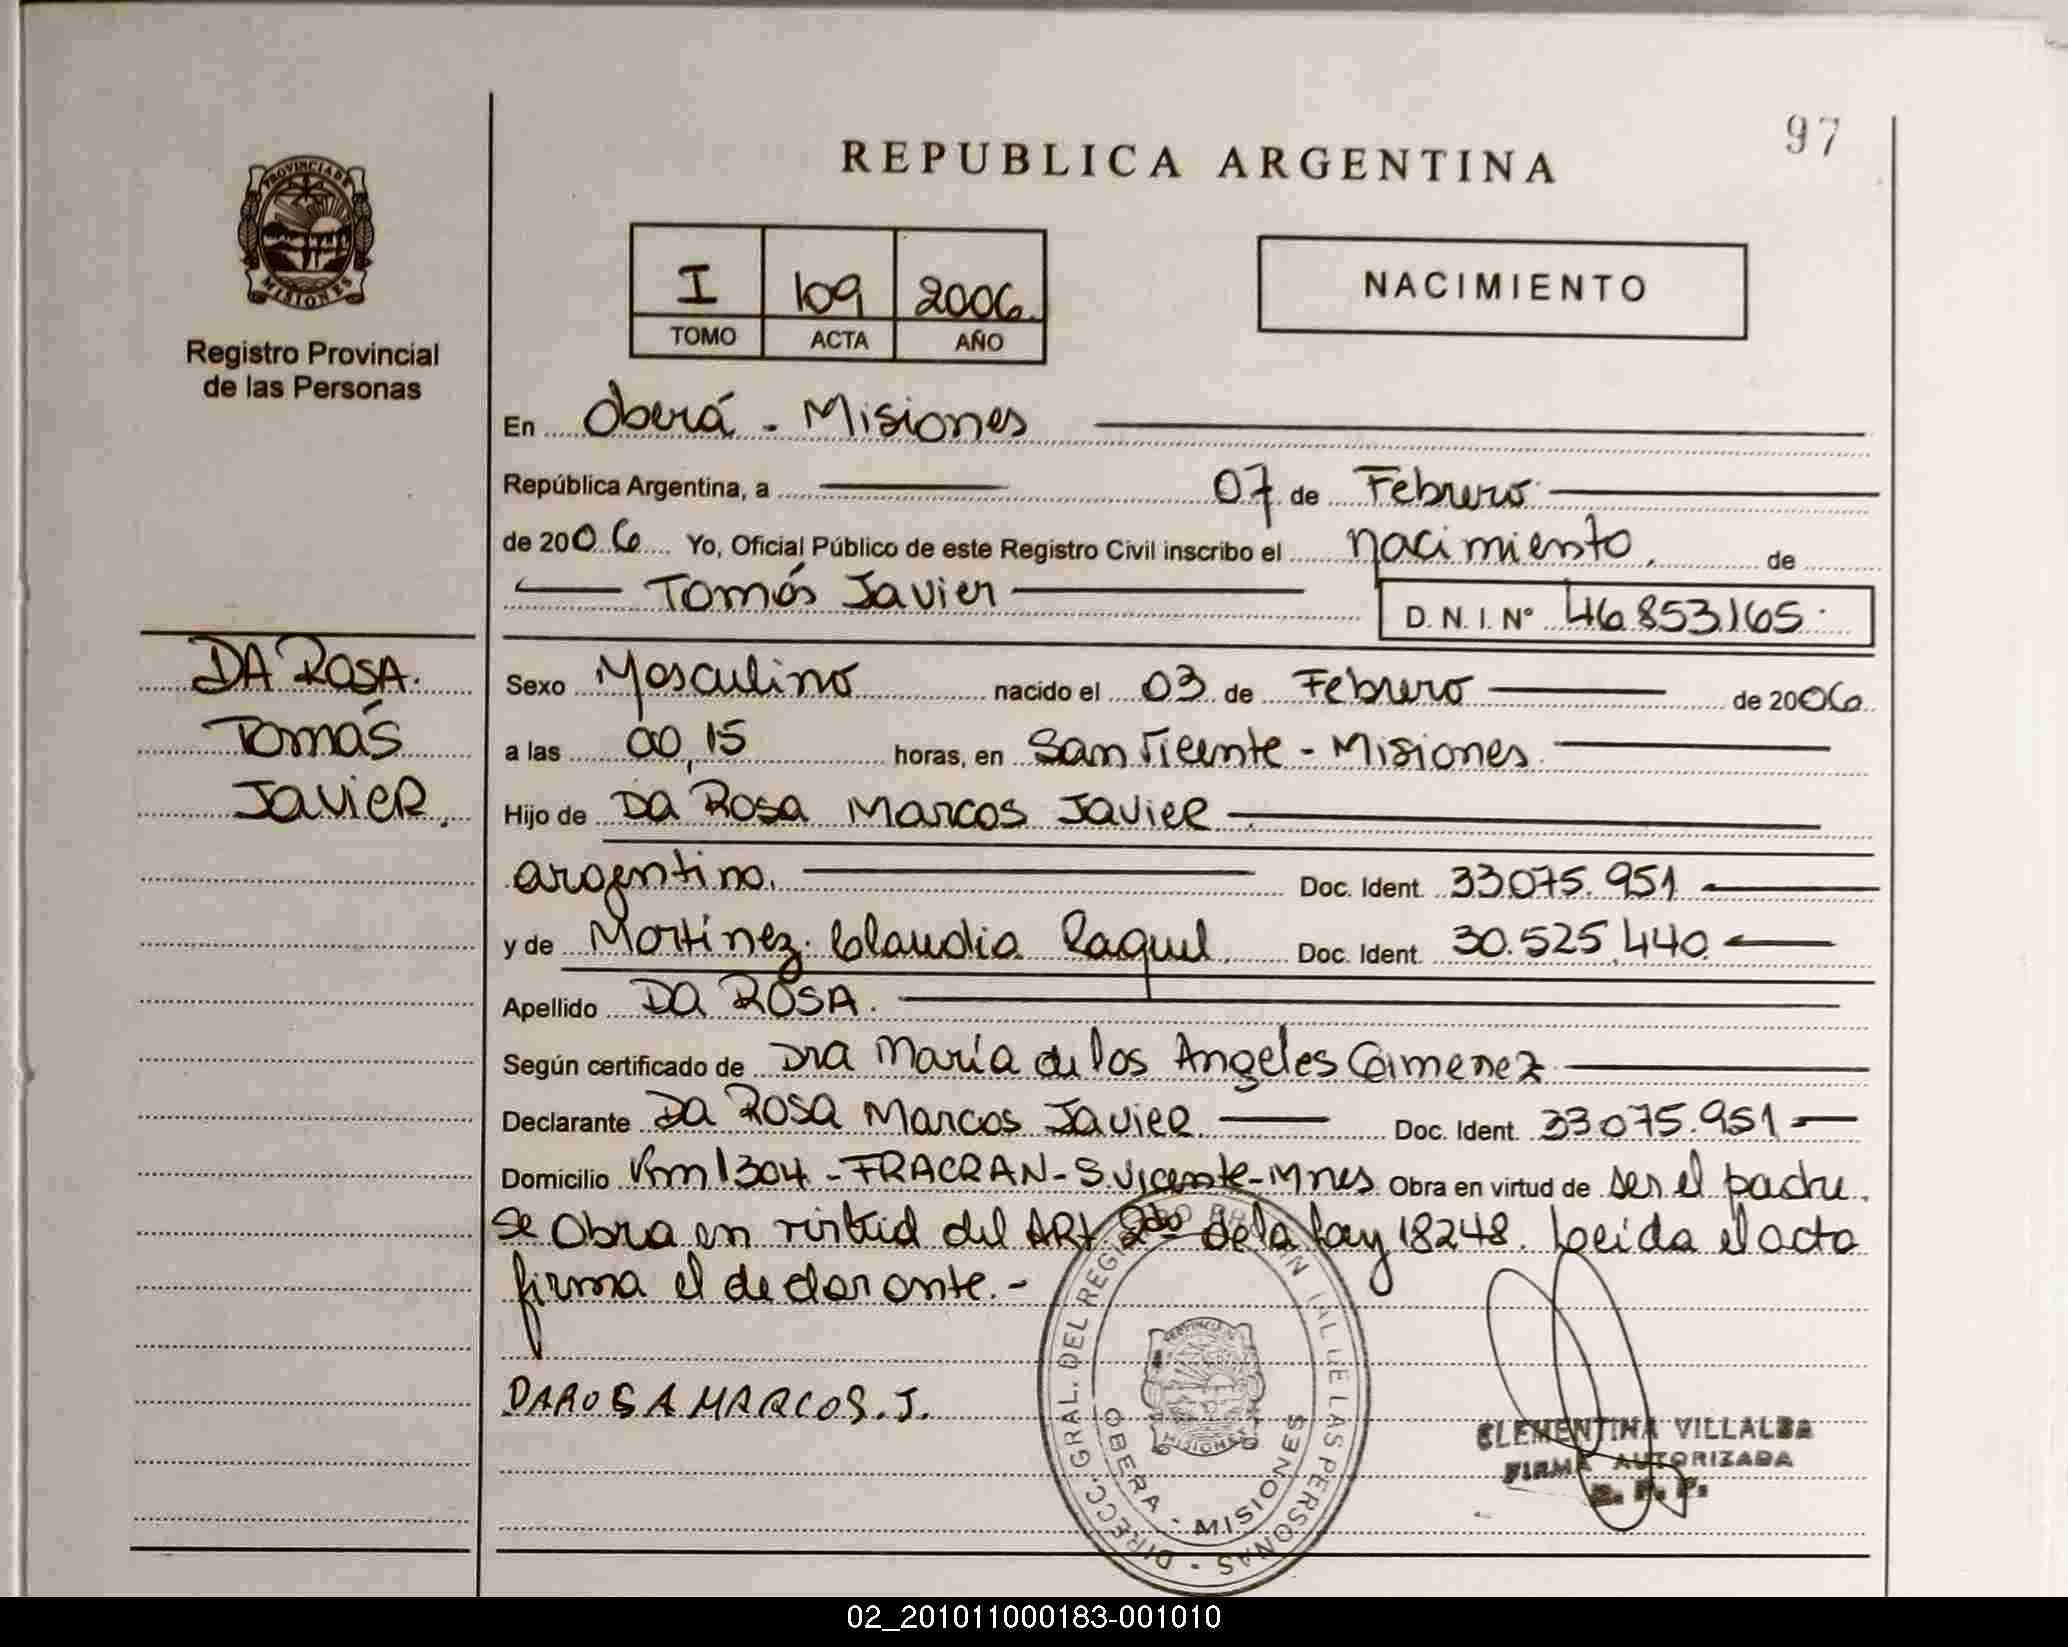 97
REPUBLICA ARGENTINA
PROVINCIA DE
MISIONES
Registro Provincial
de las Personas
I 109 2006
TOMO ACTA AÑO
NACIMIENTO
En Oberá - Misiones
República Argentina, a 07 de Febrero
de 2006 Yo, Oficial Público de este Registro Civil inscribo el nacimiento, de
Tomás Javier
D. N. I. Nº 46.853.165.
DA ROSA.
Tomás
Javier.
Sexo Masculino nacido el 03 de Febrero de 2006
a las 00,15 horas, en San Vicente - Misiones
Hijo de Da Rosa Marcos Javier
argentino. Doc. Ident. 33.075.951
y de Martinez Claudia Raquel. Doc. Ident. 30.525.440
Apellido DA ROSA.
Según certificado de Dra Maria de los Angeles Gimenez
Declarante Da Rosa Marcos Javier Doc. Ident. 33.075.951
Domicilio Km 1304 - FRACRAN - S. Vicente - Mnes Obra en virtud de ser el padre.
se obra en virtud del Art 2do de la Ley 18248. Leida el acta
firma el declarante.-
DAROSA MARCOS. J.
DIRECC. GRAL. DEL REGISTRO PROVINCIAL DE LAS PERSONAS
OBERA - MISIONES
CLEMENTINA VILLALBA
FIRMA AUTORIZADA
R. P. P.
02_201011000183-001010